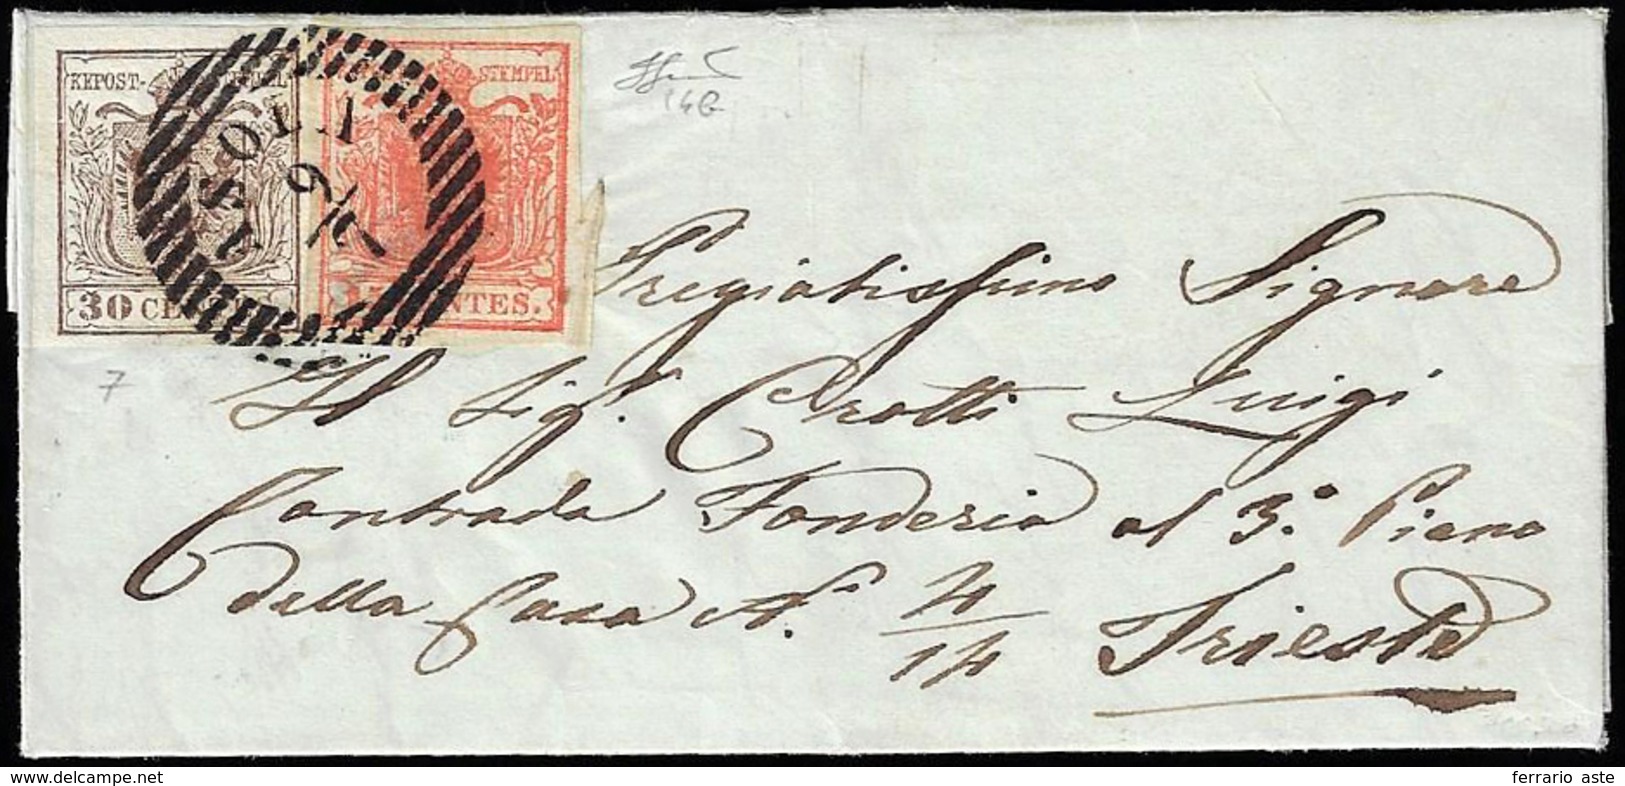 KKPOST-
STEMPEL
30 CE
NTES.
ASOLA
9/7
146
7
Pregiatissimo Signore
Il Sig.r Crotti Luigi
Contrada Fonderia al 3.o Piano
della Casa N.o 4/14 Trieste
www.delcampe.net
ferrario aste